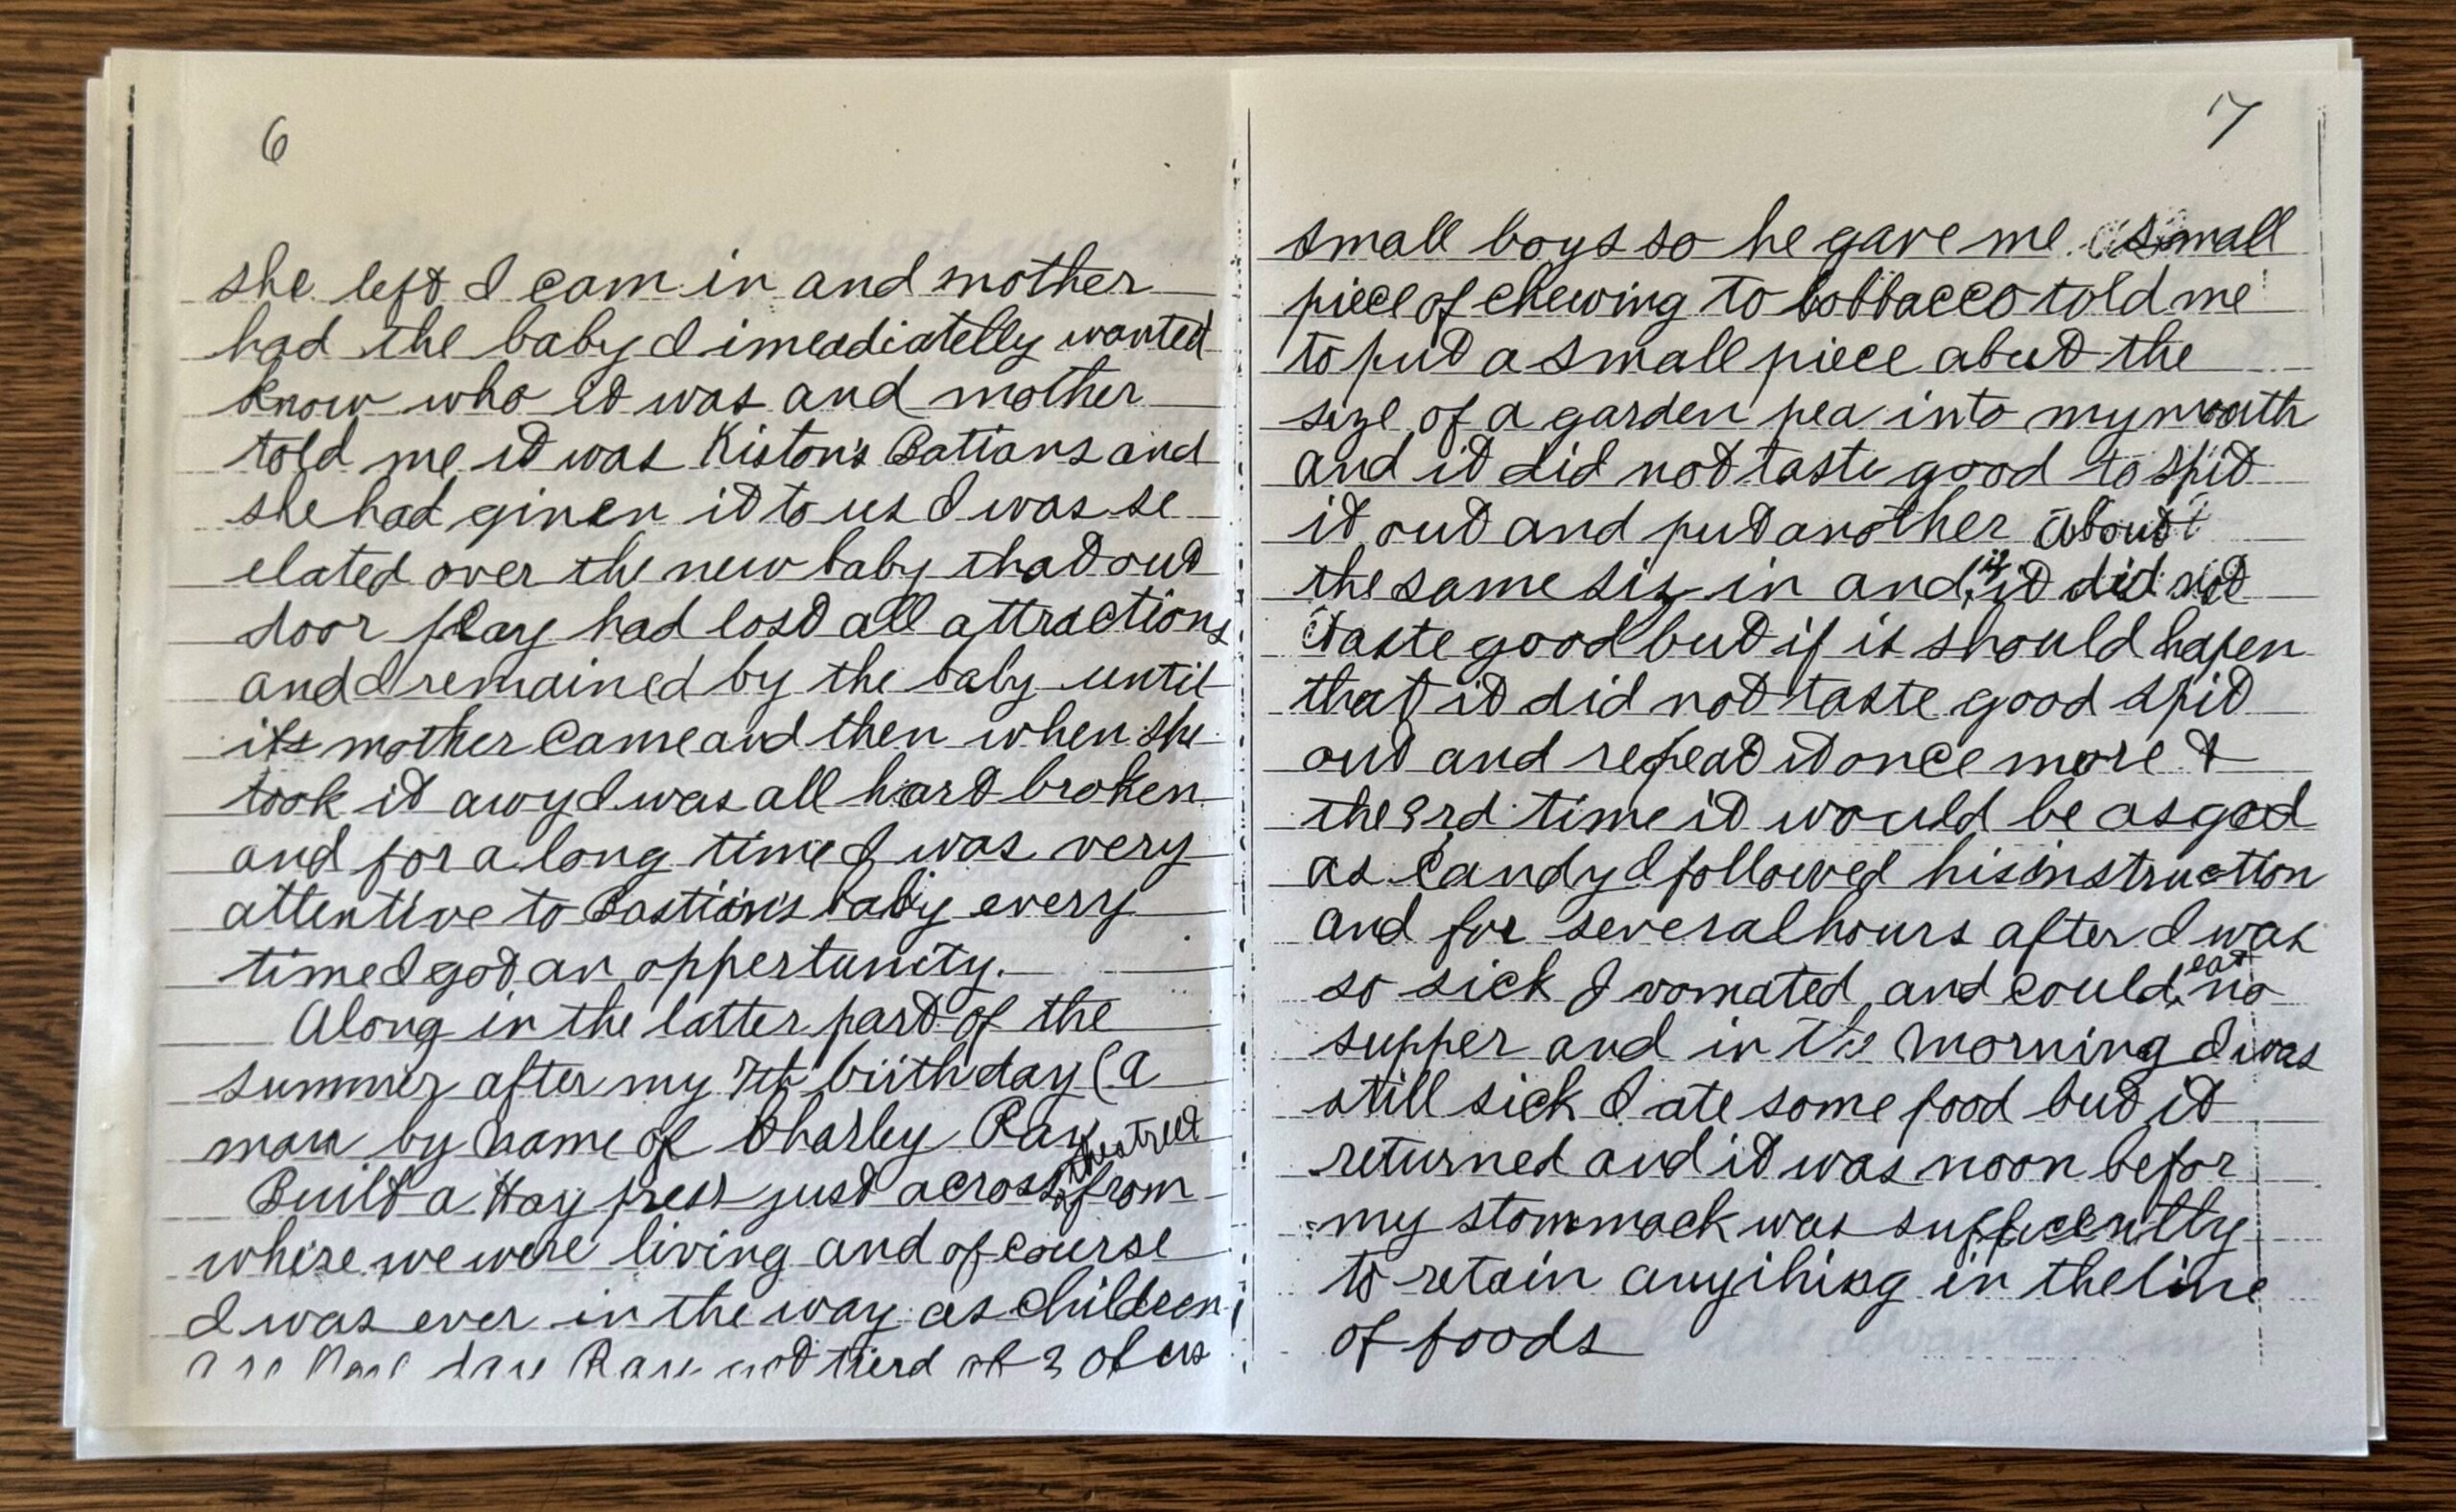 6
she left I cam in and mother
had the baby I imeadiatelly wanted
know who it was and mother
told me it was Kiston's Batians and
she had given it to us I was se
elated over the new baby that out
door play had lost all attractions
and I remained by the baby until
its mother came and then when she
took it awy I was all hart broken
and for a long time I was very
attentive to Bastian's baby every
time I got an oppertunity.
Along in the latter part of the
summer after my 7th birthday (a
man by name of Charley Ray
Build a Hay press just across the street from
where we were living and of course
I was ever in the way as children
day Ray got tierd of 3 of us
7
small boys so he gave me a small
piece of chewing to bobbacco told me
to put a small piece abut the
size of a garden pea into my mouth
and it did not taste good to spit
it out and put another about
the same siz in and if it did not
taste good but if it should hapen
that it did not taste good spit
out and repeat it once more &
the 3rd time it would be as good
as candy I followed his instruction
and for several hours after I was
so sick I vomated and could eat no
supper and in the morning I was
still sick I ate some food but it
returned and it was noon befor
my stommack was sufficently
to retain anything in the line
of foods